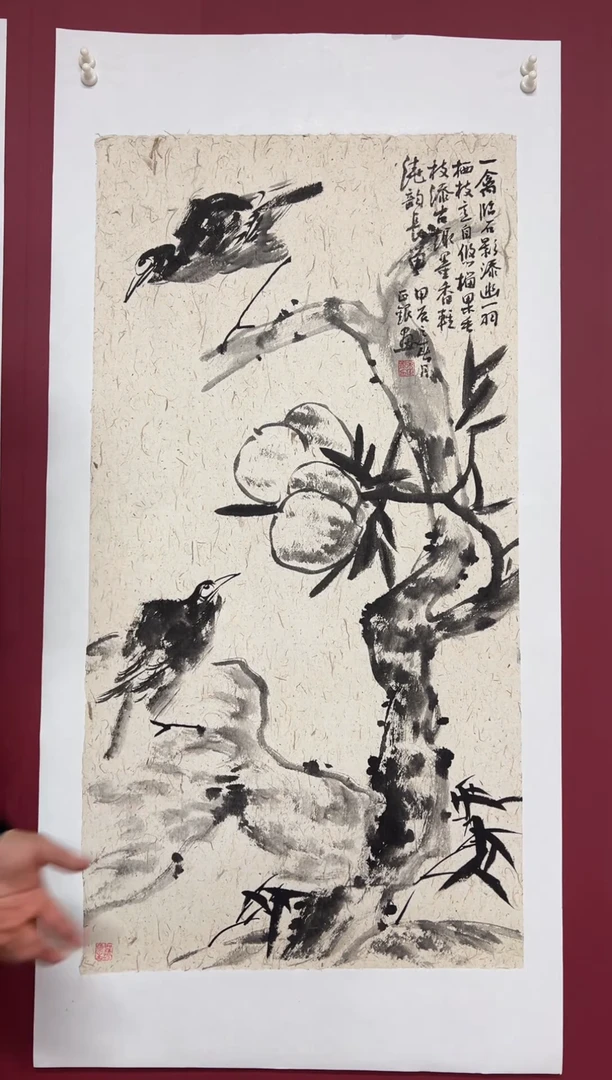 一禽临石影添幽一羽
栖枝意自悠榴果垂
枝添古趣墨香轻
绕韵长留
甲辰之春月
正银画